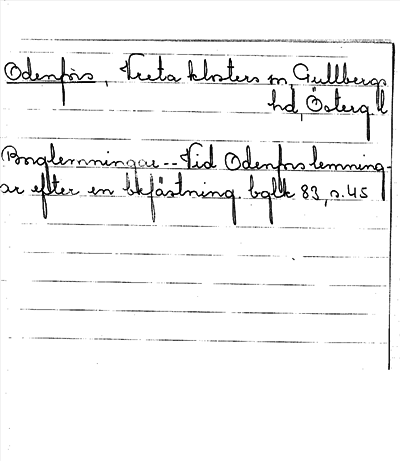 Odenfors, Vreta klosters sn, Gullbergs
hd, Österg l
Borglemningar -- Vid Odenfors lemning-
ar efter en befästning. bglk 83, s. 45